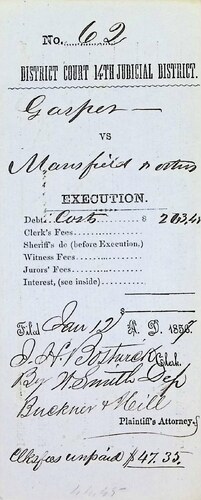 No. 62
DISTRICT COURT 14TH JUDICIAL DISTRICT.
Gasper
VS
Mansfield & others
EXECUTION.
Debt, Costs $ 263,4
Clerk's Fees
Sheriff's do (before Execution.)
Witness Fees
Jurors' Fees
Interest, (see inside)
Filed Jan 12 A. D. 185
J. H. Bostwick Clerk.
By W Smith Dep
Buckner & Hill
Plaintiff's Attorneys
Clks fees unpaid $47.35.